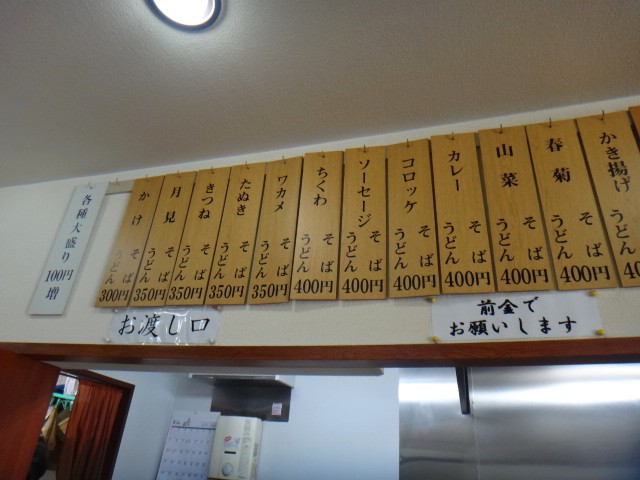 各種大盛り100円増
かけ
そば
うどん
300円
月見
そば
うどん
350円
きつね
そば
うどん
350円
たぬき
そば
うどん
350円
ワカメ
そば
うどん
350円
ちくわ
そば
うどん
400円
ソーセージ
そば
うどん
400円
コロッケ
そば
うどん
400円
カレー
そば
うどん
400円
山菜
そば
うどん
400円
春菊
そば
うどん
400円
かき揚げ
そば
うどん
お渡し口
前金で
お願いします